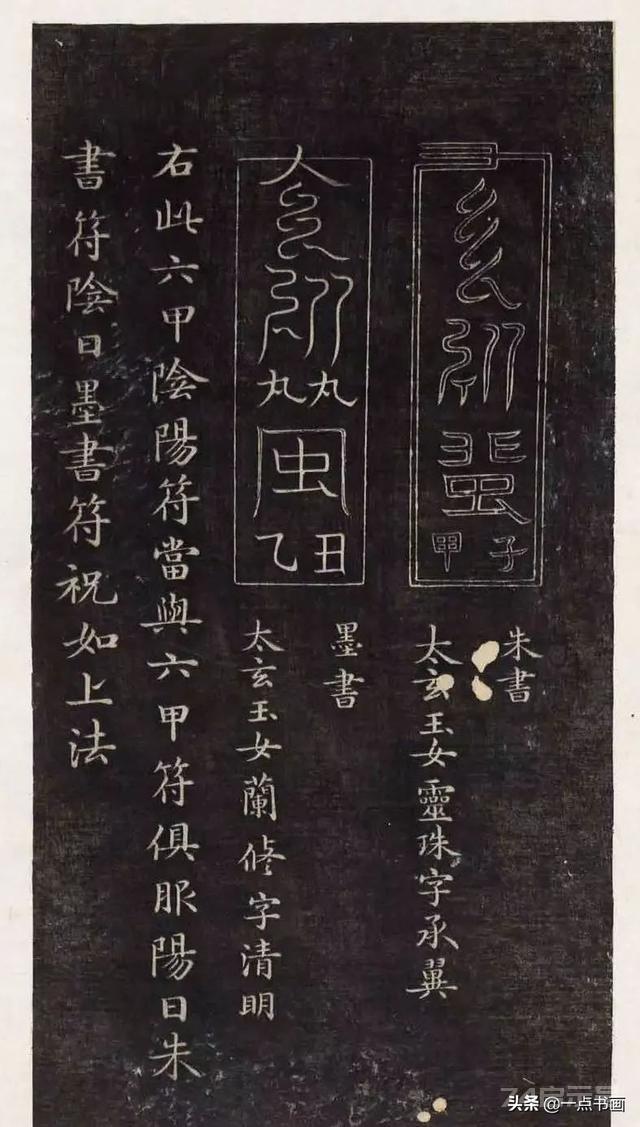 甲子
朱書
太玄玉女靈珠字承翼
乙丑
墨書
太玄玉女蘭修字清明
右此六甲陰陽符當與六甲符俱服陽日朱
書符陰日墨書符祝如上法
头条 @一点书画